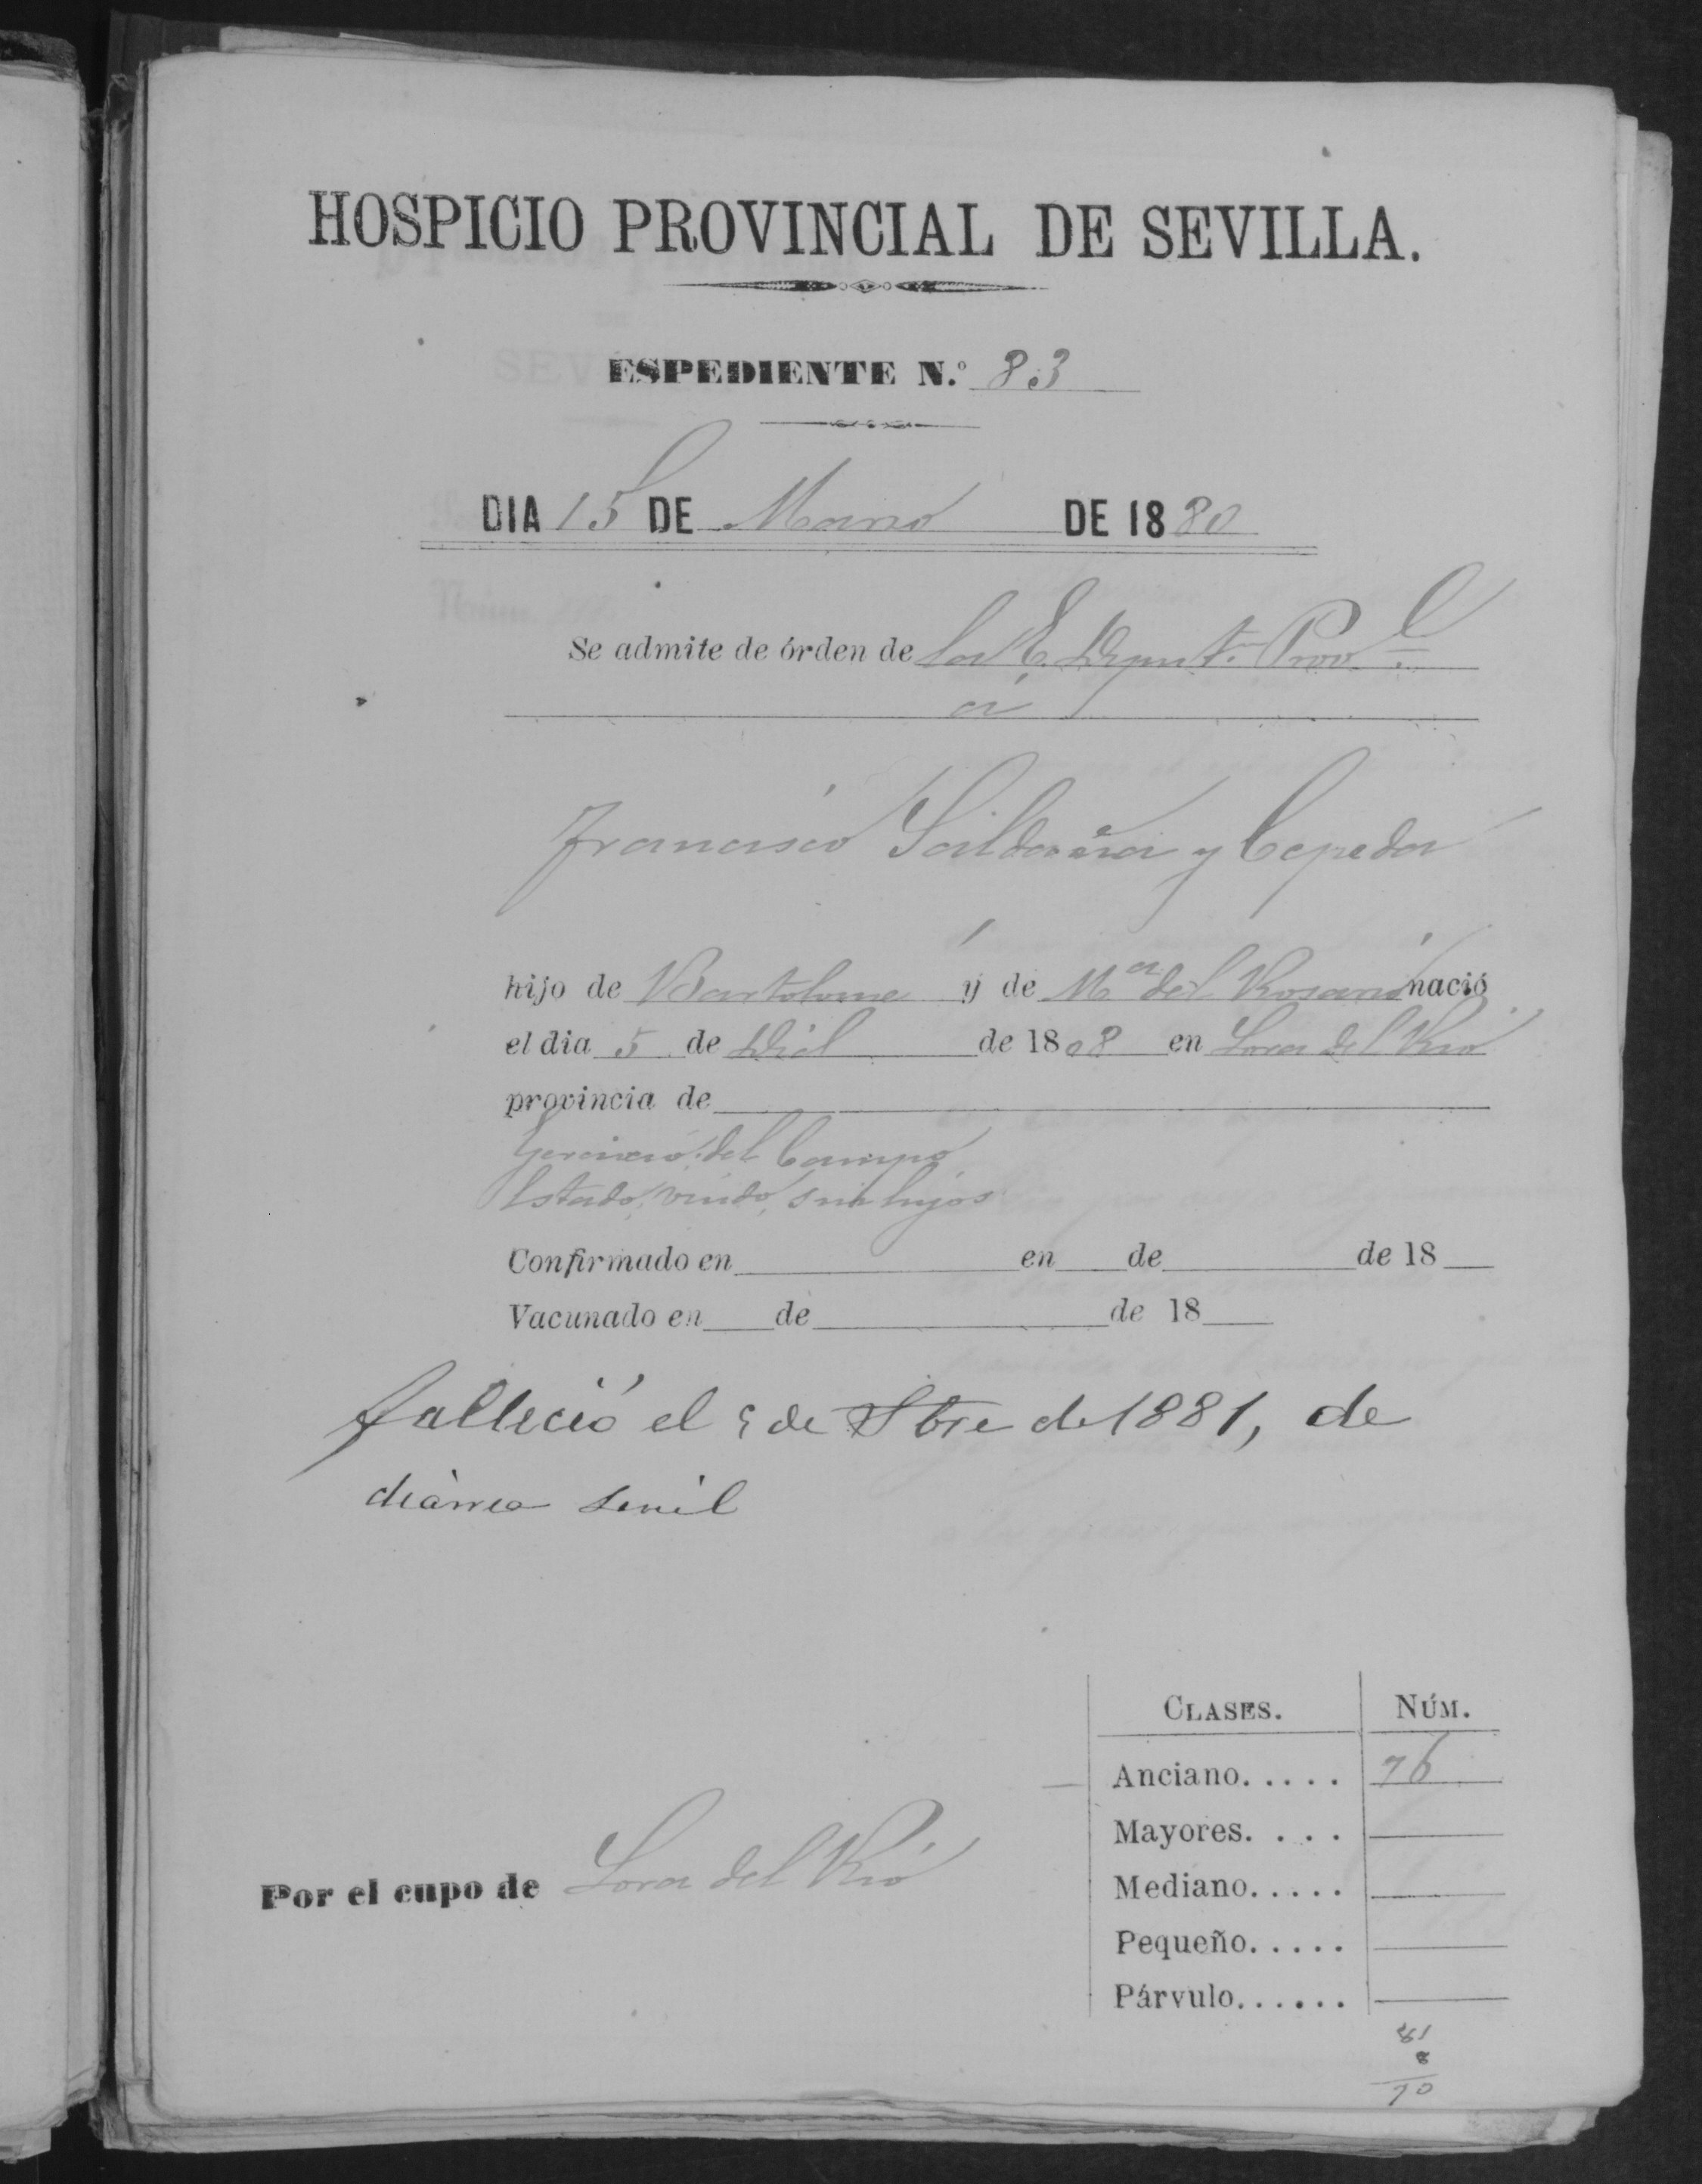 HOSPICIO PROVINCIAL DE SEVILLA.
ESPEDIENTE N.º 83
DIA 15 DE Marzo DE 1880
Se admite de órden de la E. Diput.n Prov.l
á
Francisco Saldaña y Cepeda
hijo de Bartolome y de Mª del Rosario nació
el dia 5 de de 1808 en Lora del Rio
provincia de
Egercicio del Campo
Estado, viudo, sin hijos
Confirmado en en de de 18
Vacunado en de de 18
falleció el 9 de Stbre de 1881, de
diàrrea senil
CLASES. NÚM.
Anciano..... 76
Mayores....
Mediano.....
Pequeño.....
Párvulo......
Por el cupo de Lora del Rio
81
8
70